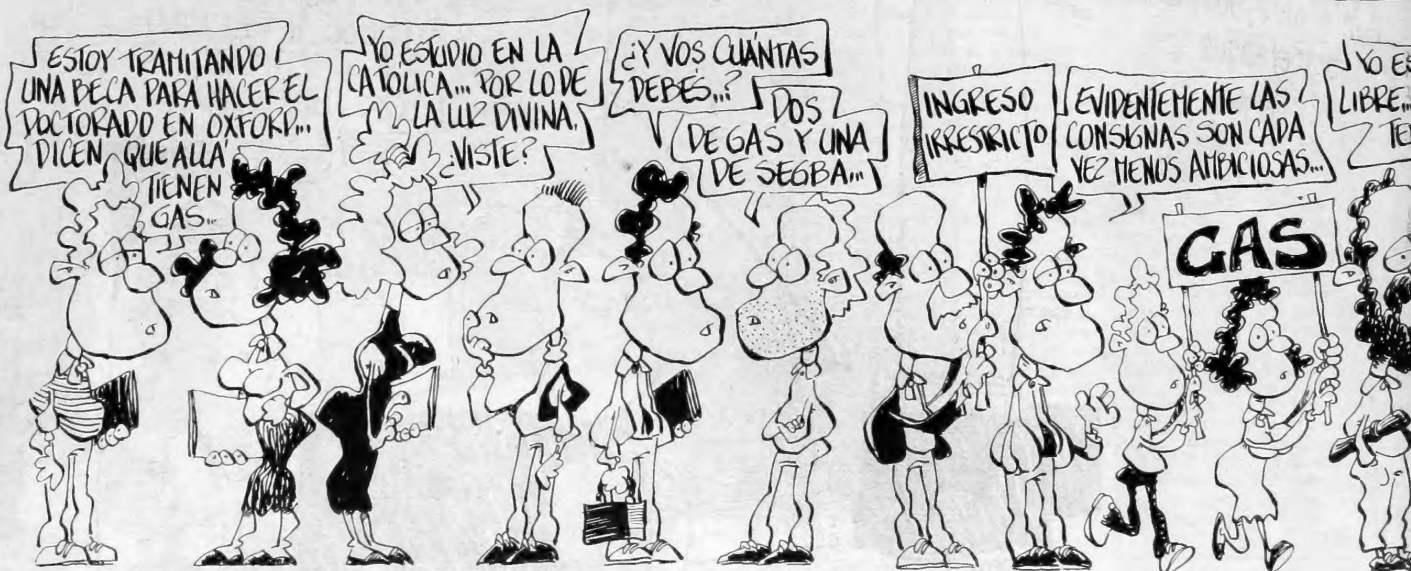 ESTOY TRAMITANDO
UNA BECA PARA HACER EL
DOCTORADO EN OXFORD...
DICEN QUE ALLÁ
TIENEN
GAS...
YO ESTUDIO EN LA
CATOLICA... POR LO DE
LA LUZ DIVINA,
¿VISTE?
¿Y VOS CUÁNTAS
DEBÉS..?
DOS
DE GAS Y UNA
DE SEGBA...
INGRESO
IRRESTRICTO
EVIDENTEMENTE LAS
CONSIGNAS SON CADA
VEZ MENOS AMBICIOSAS...
GAS
YO
LIBRE...